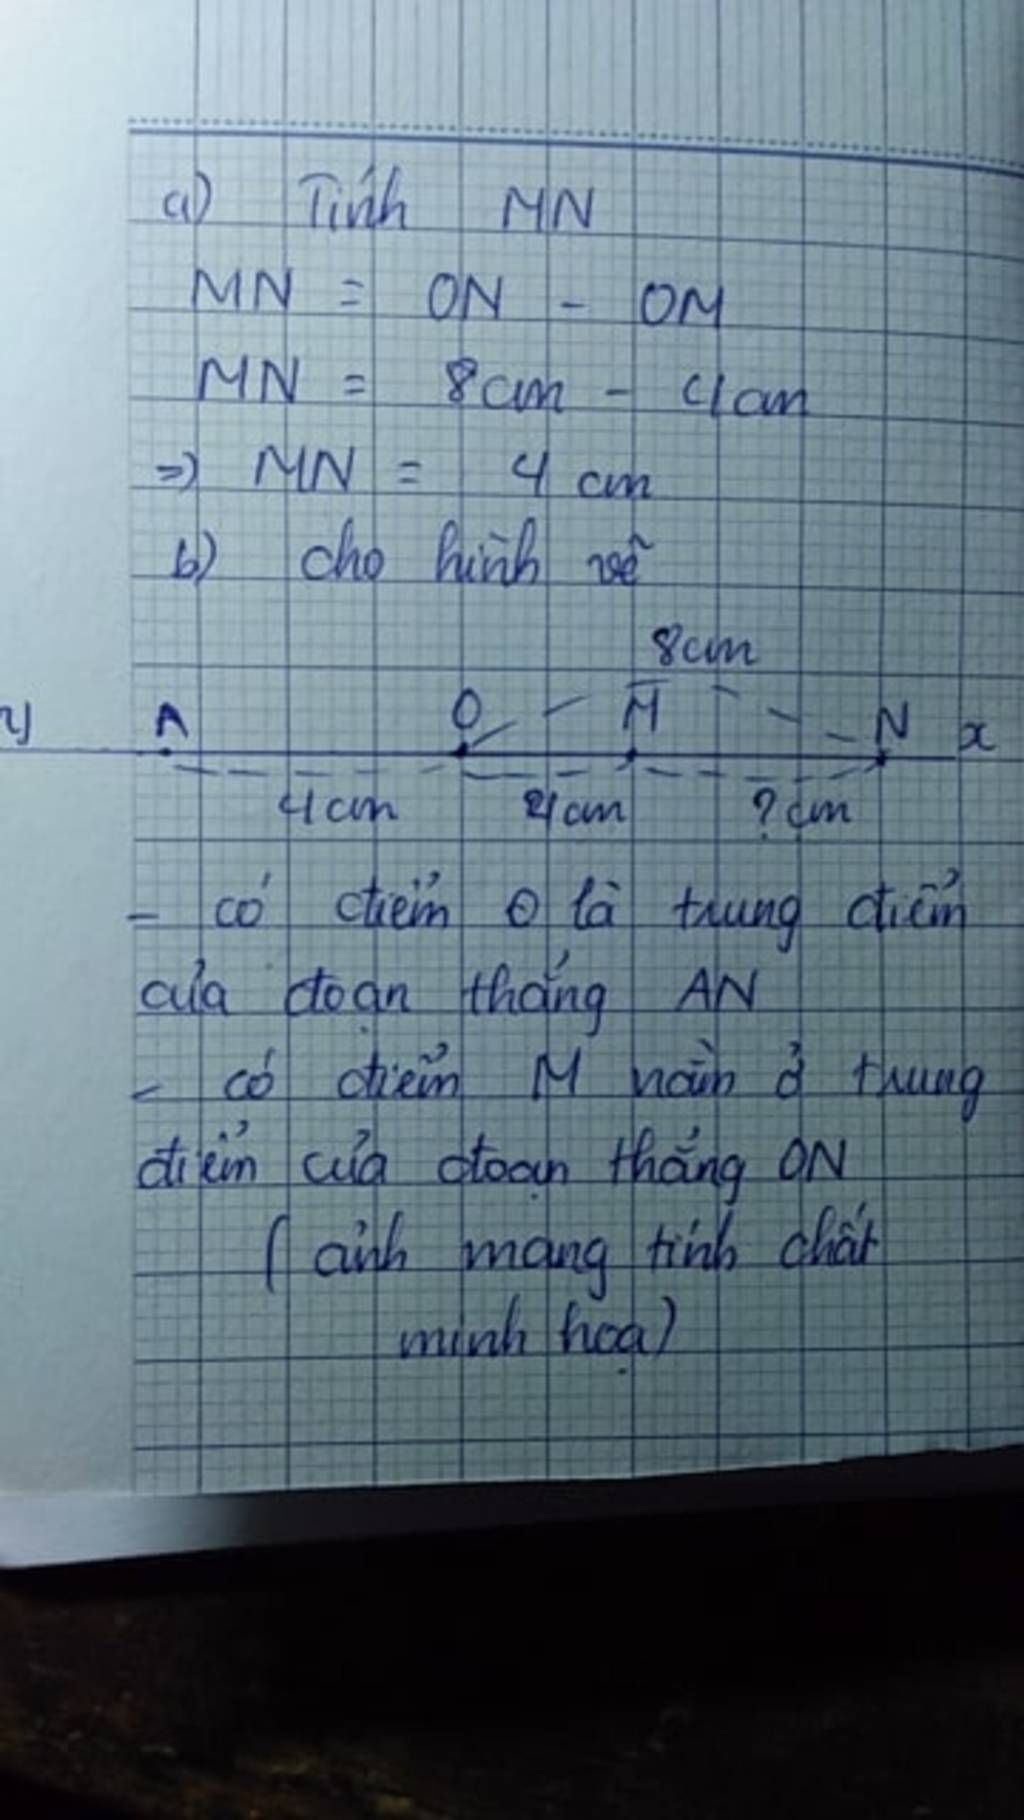 a) Tính MN
MN = ON - OM
MN = 8cm - 4cm
=> MN = 4 cm
b) cho hình vẽ
8cm
y A O M N x
4cm 4cm ? cm
- có điểm O là trung điểm
của đoạn thẳng AN
- có điểm M nằm ở trung
điểm của đoạn thẳng ON
( ảnh mang tính chất
minh hoạ)